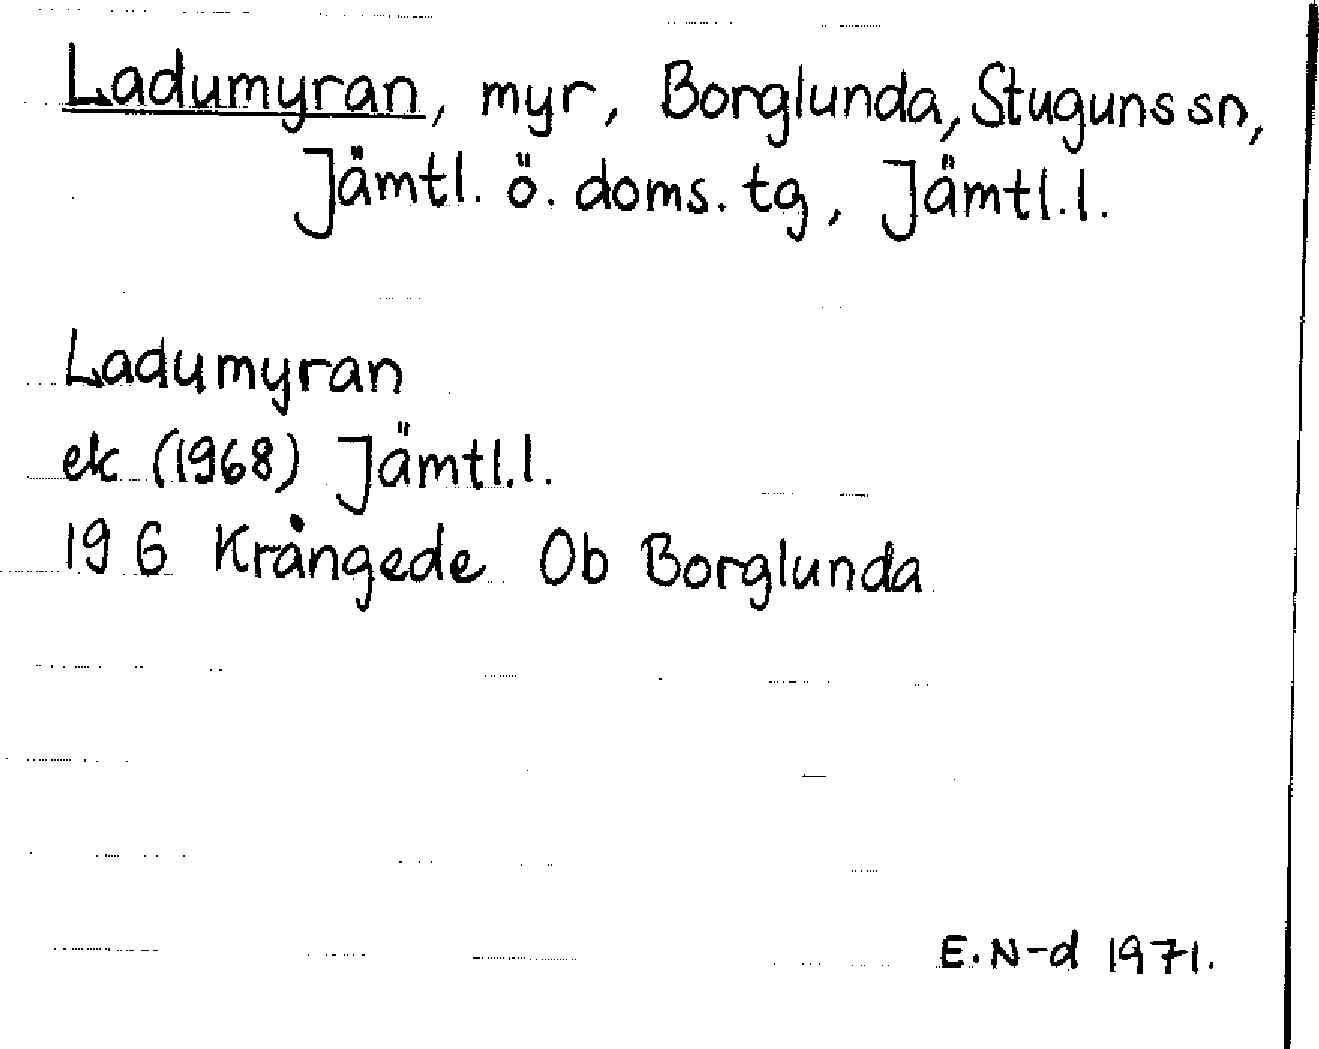 Ladumyran, myr, Borglunda, Stuguns sn,
Jämtl. ö. doms. tg, Jämtl. l.
Ladumyran
ek (1968) Jämtl. l.
19 G Krångede Ob Borglunda
E. N-d 1971.